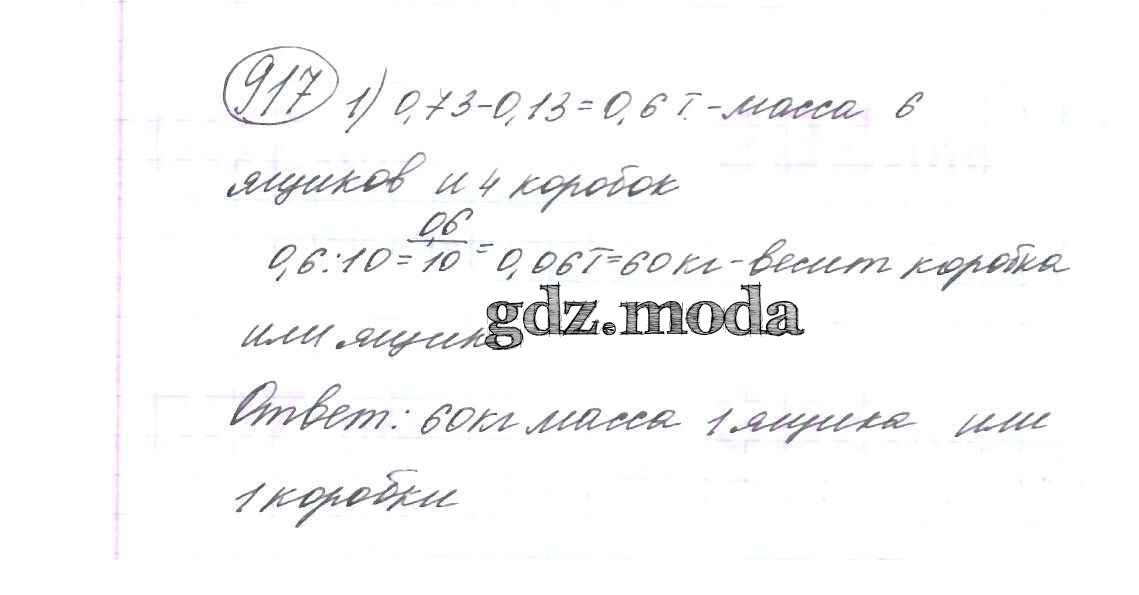 917 1) 0,73-0,13=0,6 т.-масса 6
ящиков и 4 коробок
0,6:10=0,6/10=0,06т=60кг-весит коробка
или ящик
gdz.moda
Ответ: 60кг масса 1 ящика или
1 коробки